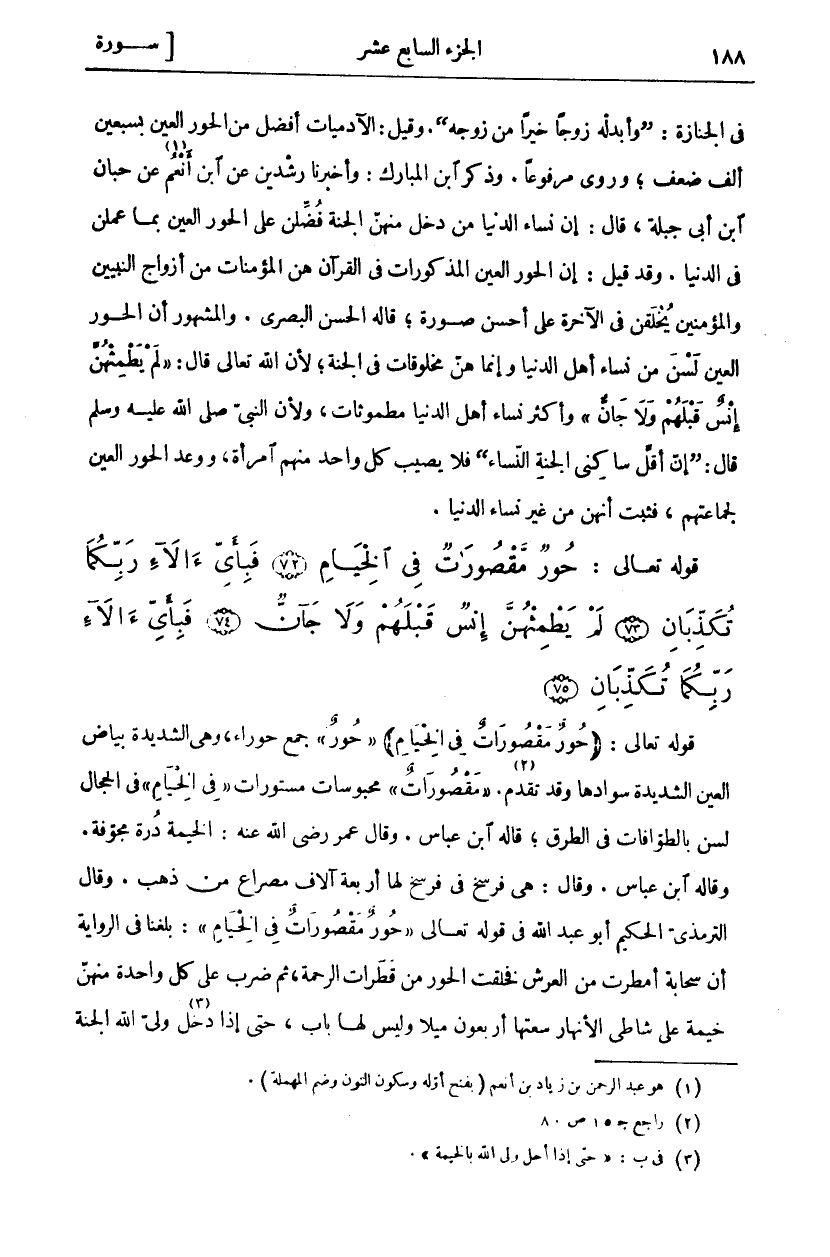 ١٨٨ الجزء السابع عشر [ سـورة
فى الجنازة : ”وأبدله زوجًا خيرًا من زوجه“. وقيل: الآدميات أفضل من الحور العين بسبعين
ألف ضعف ؛ وروى مرفوعًا . وذكر ٱبن المبارك : وأخبرنا رشْدين عن ٱبن أَنْعُم (١) عن حبان
ٱبن أبى جبلة ، قال : إن نساء الدنيا من دخل منهنّ الجنة فُضِّلن على الحور العين بمـا عملن
فى الدنيا . وقد قيل : إن الحور العين المذكورات فى القرآن هن المؤمنات من أزواج النبيين
والمؤمنين يُخْلَقن فى الآخرة على أحسن صـورة ؛ قاله الحسن البصرى . والمشهور أن الحـور
العين لَسْنَ من نساء أهل الدنيا وإنما هنّ مخلوقات فى الجنة ؛ لأن الله تعالى قال : «لَمْ يَطْمِثْهُنَّ
إِنْسٌ قَبْلَهُمْ وَلَا جَانٌّ » وأكثر نساء أهل الدنيا مطموثات ، ولأن النبىّ صلى الله عليـه وسلم
قال : ”إنّ أقلَّ ساكنى الجنةِ النّساء“ فلا يصيب كل واحد منهم ٱمرأة ، ووعد الحور العين
لجماعتهم ، فثبت أنهن من غير نساء الدنيا .
قوله تعـالى : حُورٌ مَّقْصُورَٰتٌ فِى ٱلْخِيَـامِ ﴿٧٢﴾ فَبِأَىِّ ءَالَآءِ رَبِّكُمَا
تُكَذِّبَانِ ﴿٧٣﴾ لَمْ يَطْمِثْهُنَّ إِنسٌ قَبْلَهُمْ وَلَا جَآنٌّ ﴿٧٤﴾ فَبِأَىِّ ءَالَآءِ
رَبِّكُمَا تُكَذِّبَانِ ﴿٧٥﴾
قوله تعالى : ﴿حُورٌ مَقْصُورَاتٌ فِى الْخِيَامِ﴾ « حُورٌ » جمع حوراء ، وهى الشديدة بياض
العين الشديدة سوادها وقد تقدم (٢) . «مَقْصُورَاتٌ» محبوسات مستورات « فِى الْخِيَامِ» فى الحجال
لسن بالطوّافات فى الطرق ؛ قاله ٱبن عباس . وقال عمر رضى الله عنه : الخيمة دُرة مجوّفة .
وقاله ٱبن عباس . وقال : هى فرسخ فى فرسخ لها أربعة آلاف مصراع من ذهب . وقال
الترمذىّ الحكيم أبو عبد الله فى قوله تعـالى «حُورٌ مَقْصُورَاتٌ فِى الْخِيَامِ » : بلغنا فى الرواية
أن سحابة أمطرت من العرش فخلقت الحور من قَطَرات الرحمة ، ثم ضرب على كل واحدة منهنّ
خيمة على شاطئ الأنهار سعتها أربعون ميلا وليس لهـا باب ، حتى إذا دخل (٣) ولىّ الله الجنة
(١) هو عبد الرحمن بن زياد بن أنعم ( بفتح أوّله وسكون النون وضم المهملة ) .
(٢) راجع جـ ١٥ ص ٨٠
(٣) فى ب : « حتى إذا أحل ولى الله بالخيمة » .